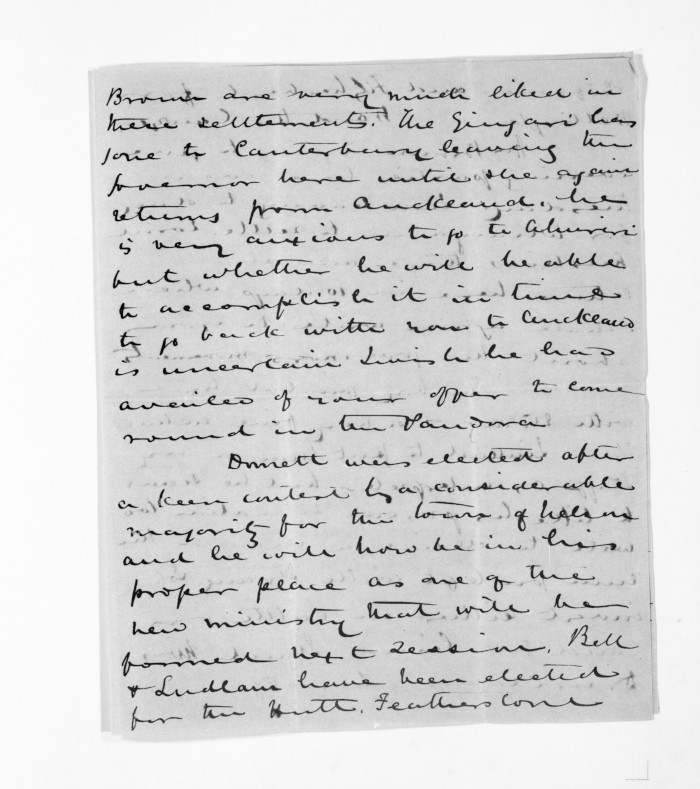 Brown are very much liked in
these settlements. The Zingari has
gone to Canterbury leaving the
Governor here until she again
returns from Auckland, he
is very anxious to go to Ahuriri
but whether he will be able
to accomplish it in time
to go back with you to Auckland
is uncertain I wish he had
availed of your offer to come
round in the Pandora
Domett was elected after
a keen contest by a considerable
majority for the town of Nelson
and he will now be in his
proper place as one of the
new ministry that will be
formed next session. Bell
& Ludlam have been elected
for the Hutt. Featherstone